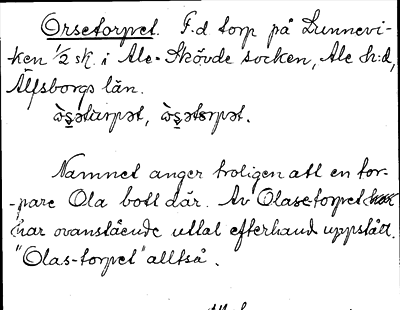 Orsetorpet. F.d torp på Lunnevi-
ken 1/2 sk. i Ale-Skövde socken, Ale h:d,
Älfsborgs län.
Namnet anger troligen att en tor-
-pare Ola bott där. Av Olasetorpet
har ovanstående uttal efterhand uppstått.
"Olas-torpet" alltså.